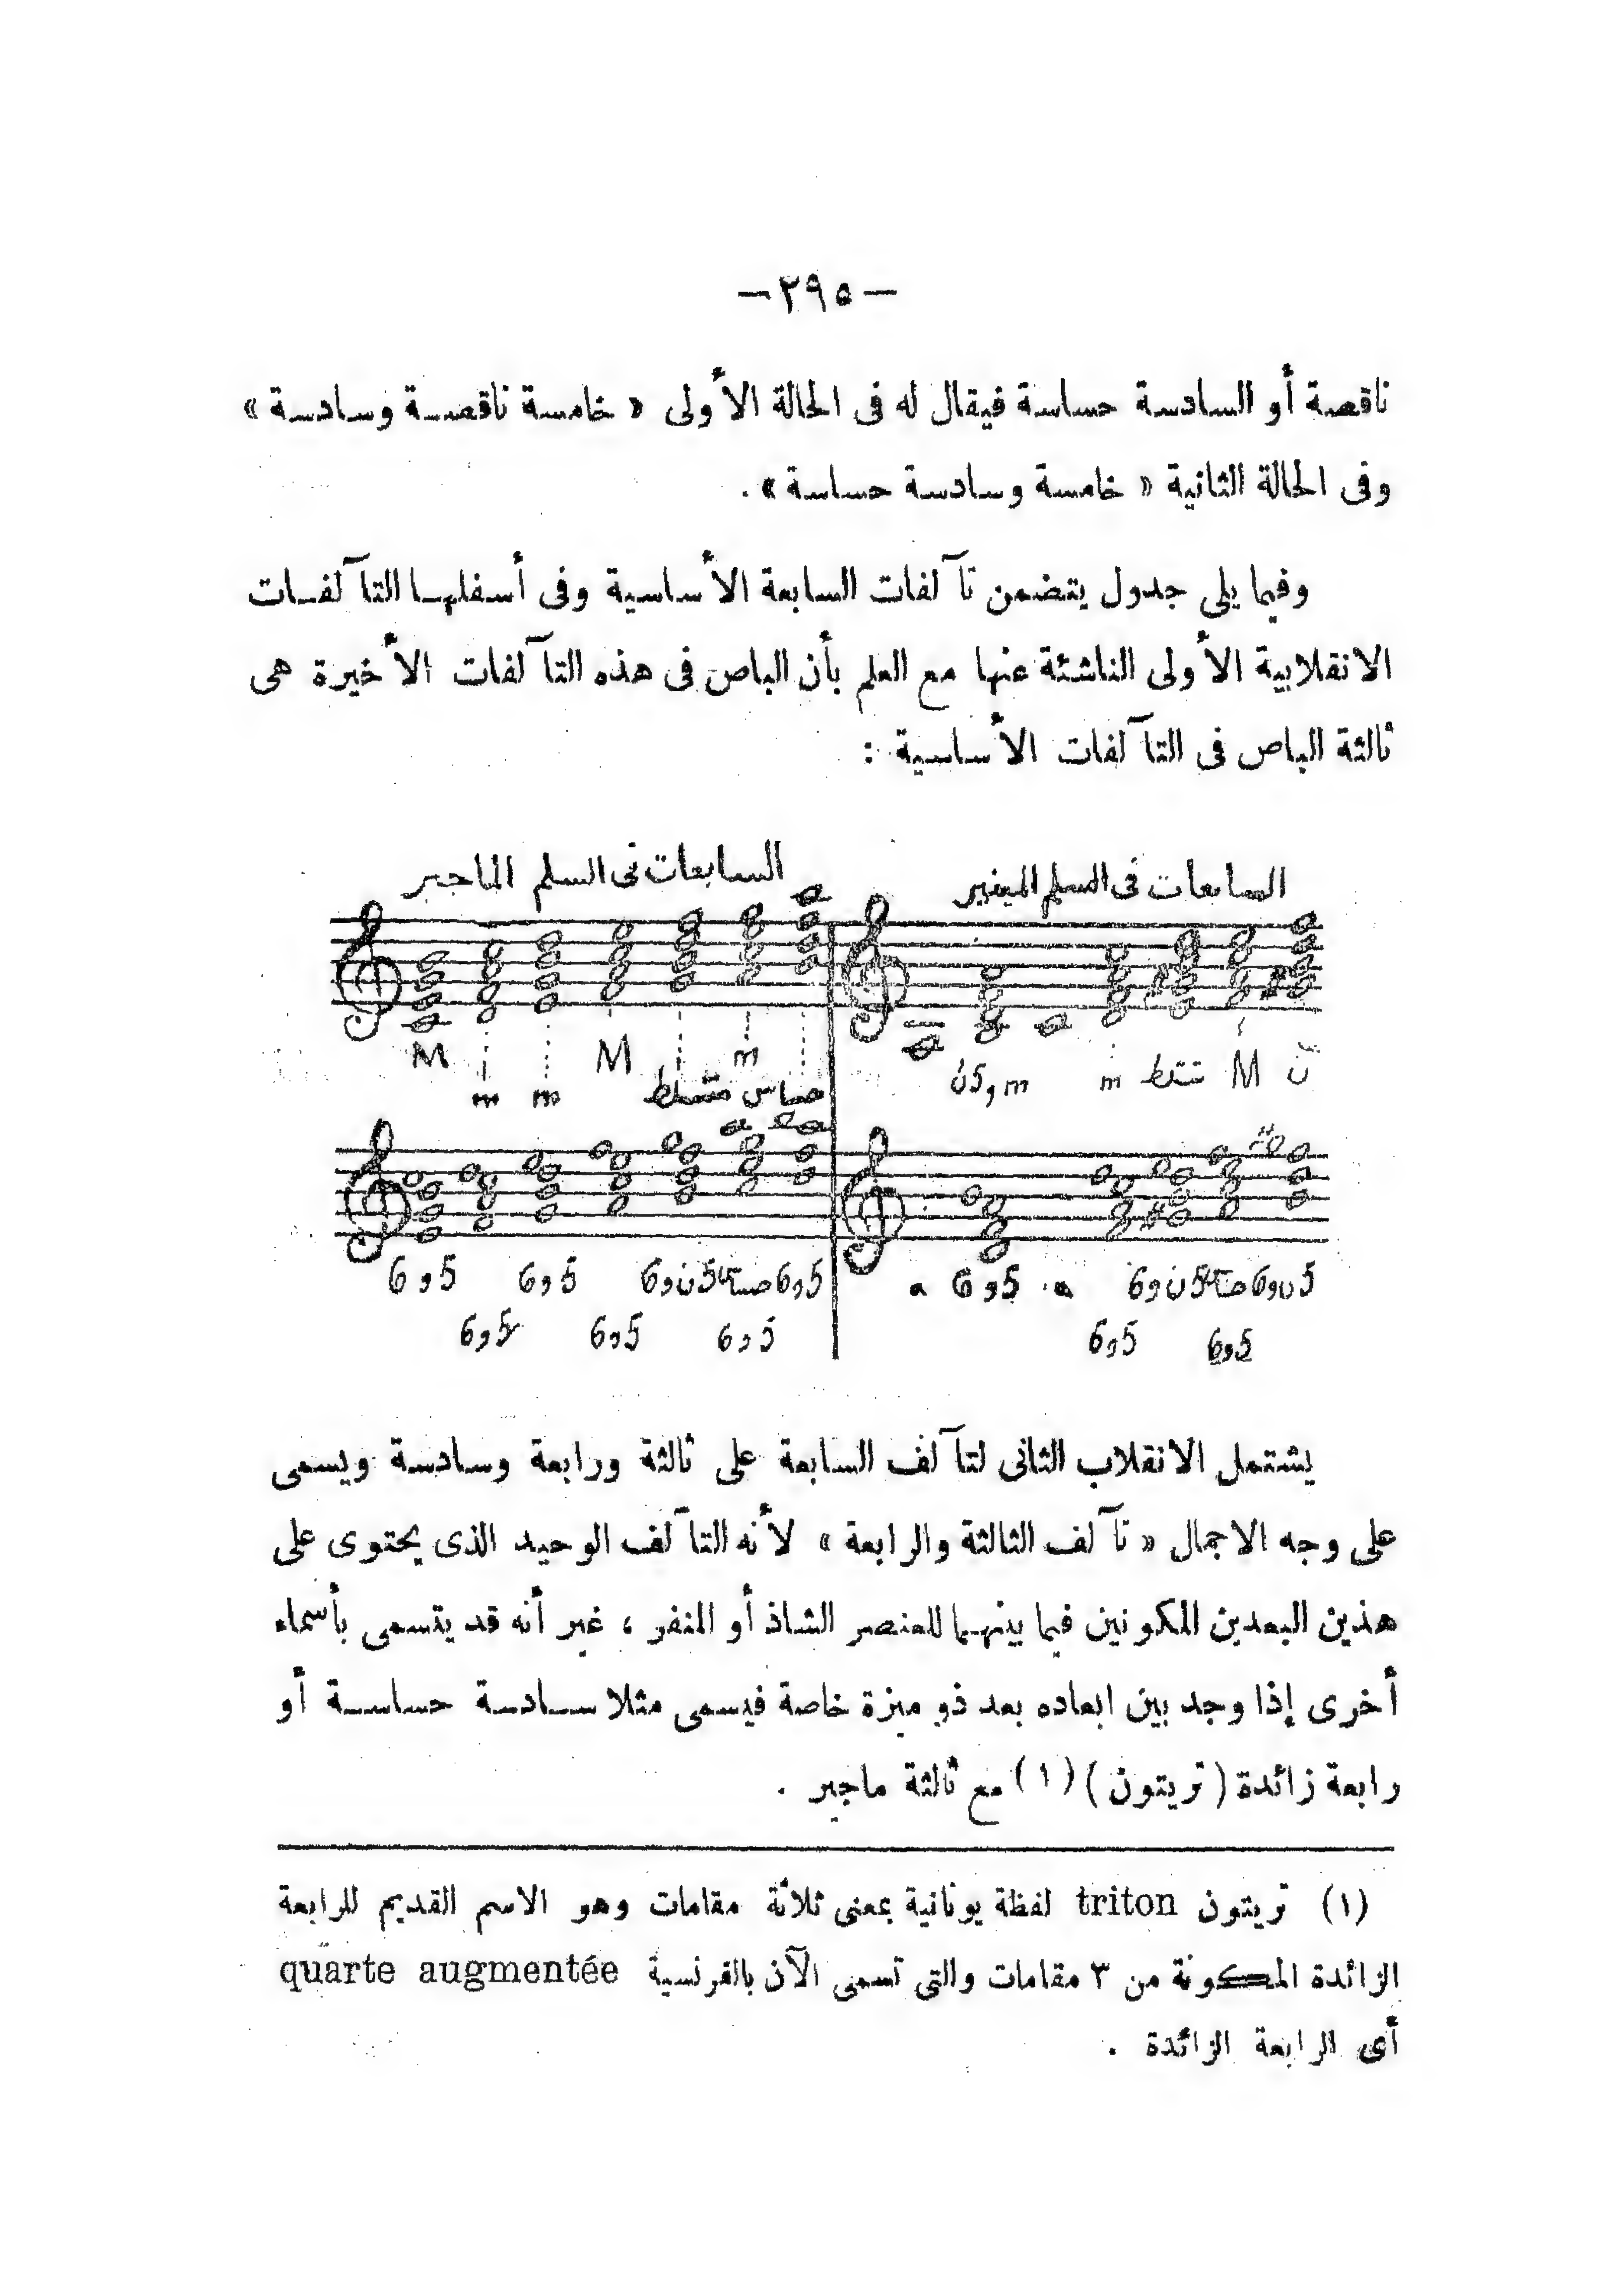 — ٢٩٥ —
ناقصة أو السادسة حساسة فيقال له فى الحالة الأولى « خامسة ناقصة وسادسة »
وفى الحالة الثانية « خامسة وسادسة حساسة » .
وفيما يلى جدول يتضمن تآلفات السابعة الأساسية وفى أسفلها التآلفات
الانقلابية الأولى الناشئة عنها مع العلم بأن الباص فى هذه التآلفات الأخيرة هى
ثالثة الباص فى التآلفات الأساسية :
السابعات فى السلم الماجير
السابعات فى السلم المينير
M M m
m m حساس متسلط
m و5ن m M ن
6و5 6و5 6و5ن 6و5
6و5 6و5 6و5
6و5 6و5ن
6و5 6و5
يشتمل الانقلاب الثانى لتآلف السابعة على ثالثة ورابعة وسادسة ويسمى
على وجه الاجمال « تآلف الثالثة والرابعة » لأنه التآلف الوحيد الذى يحتوى على
هذين البعدين المكونين فيما بينهما للعنصر الشاذ أو المنفر ، غير أنه قد يتسمى بأسماء
أخرى إذا وجد بين ابعاده بعد ذو ميزة خاصة فيسمى مثلا سادسة حساسة أو
رابعة زائدة ( تريتون ) (١) مع ثالثة ماجير .
(١) تريتون triton لفظة يونانية بمعنى ثلاثة مقامات وهو الاسم القديم للرابعة
الزائدة المكونة من ٣ مقامات والتى تسمى الآن بالفرنسية quarte augmentée
أى الرابعة الزائدة .